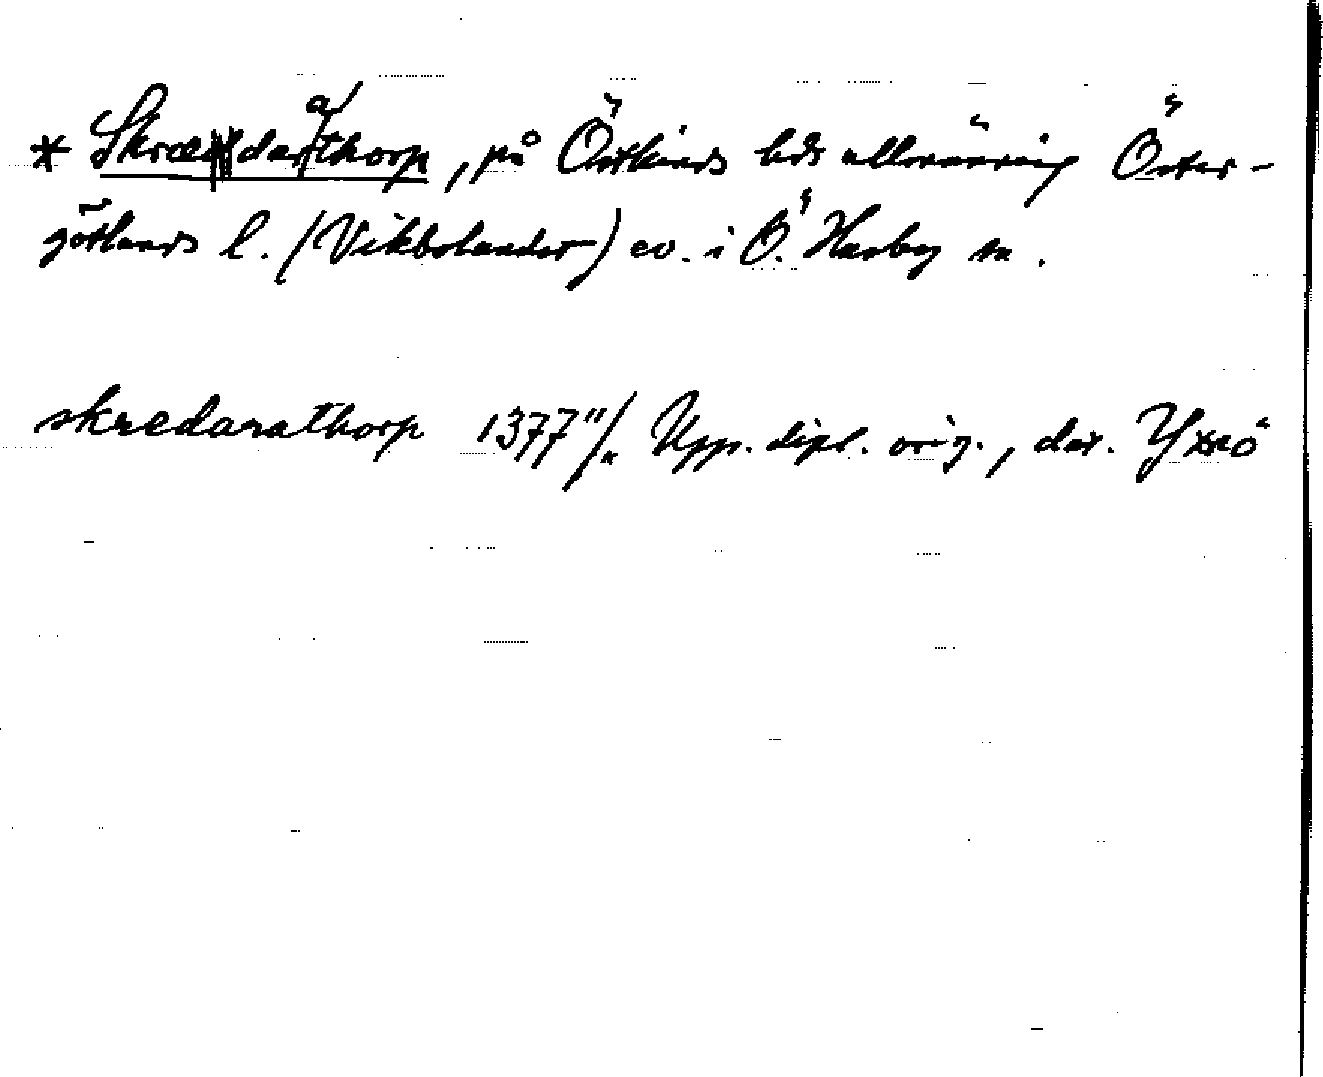 * Skrædarathorp, på Östkinds hds allmänning Öster-
götlands l. (Vikbolandet) ev. i Ö. Husby sn.
skredarathorp 1377 11/11 Upp. dipl. orig., dat. Yxnö